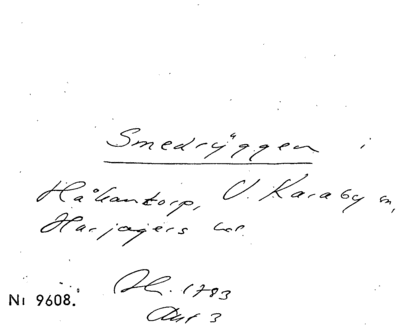 Smedryggen i
Håkantorp, V. Karaby sn,
Barjagers hd.
Ni 9608. Ak. 1783
Akt 3